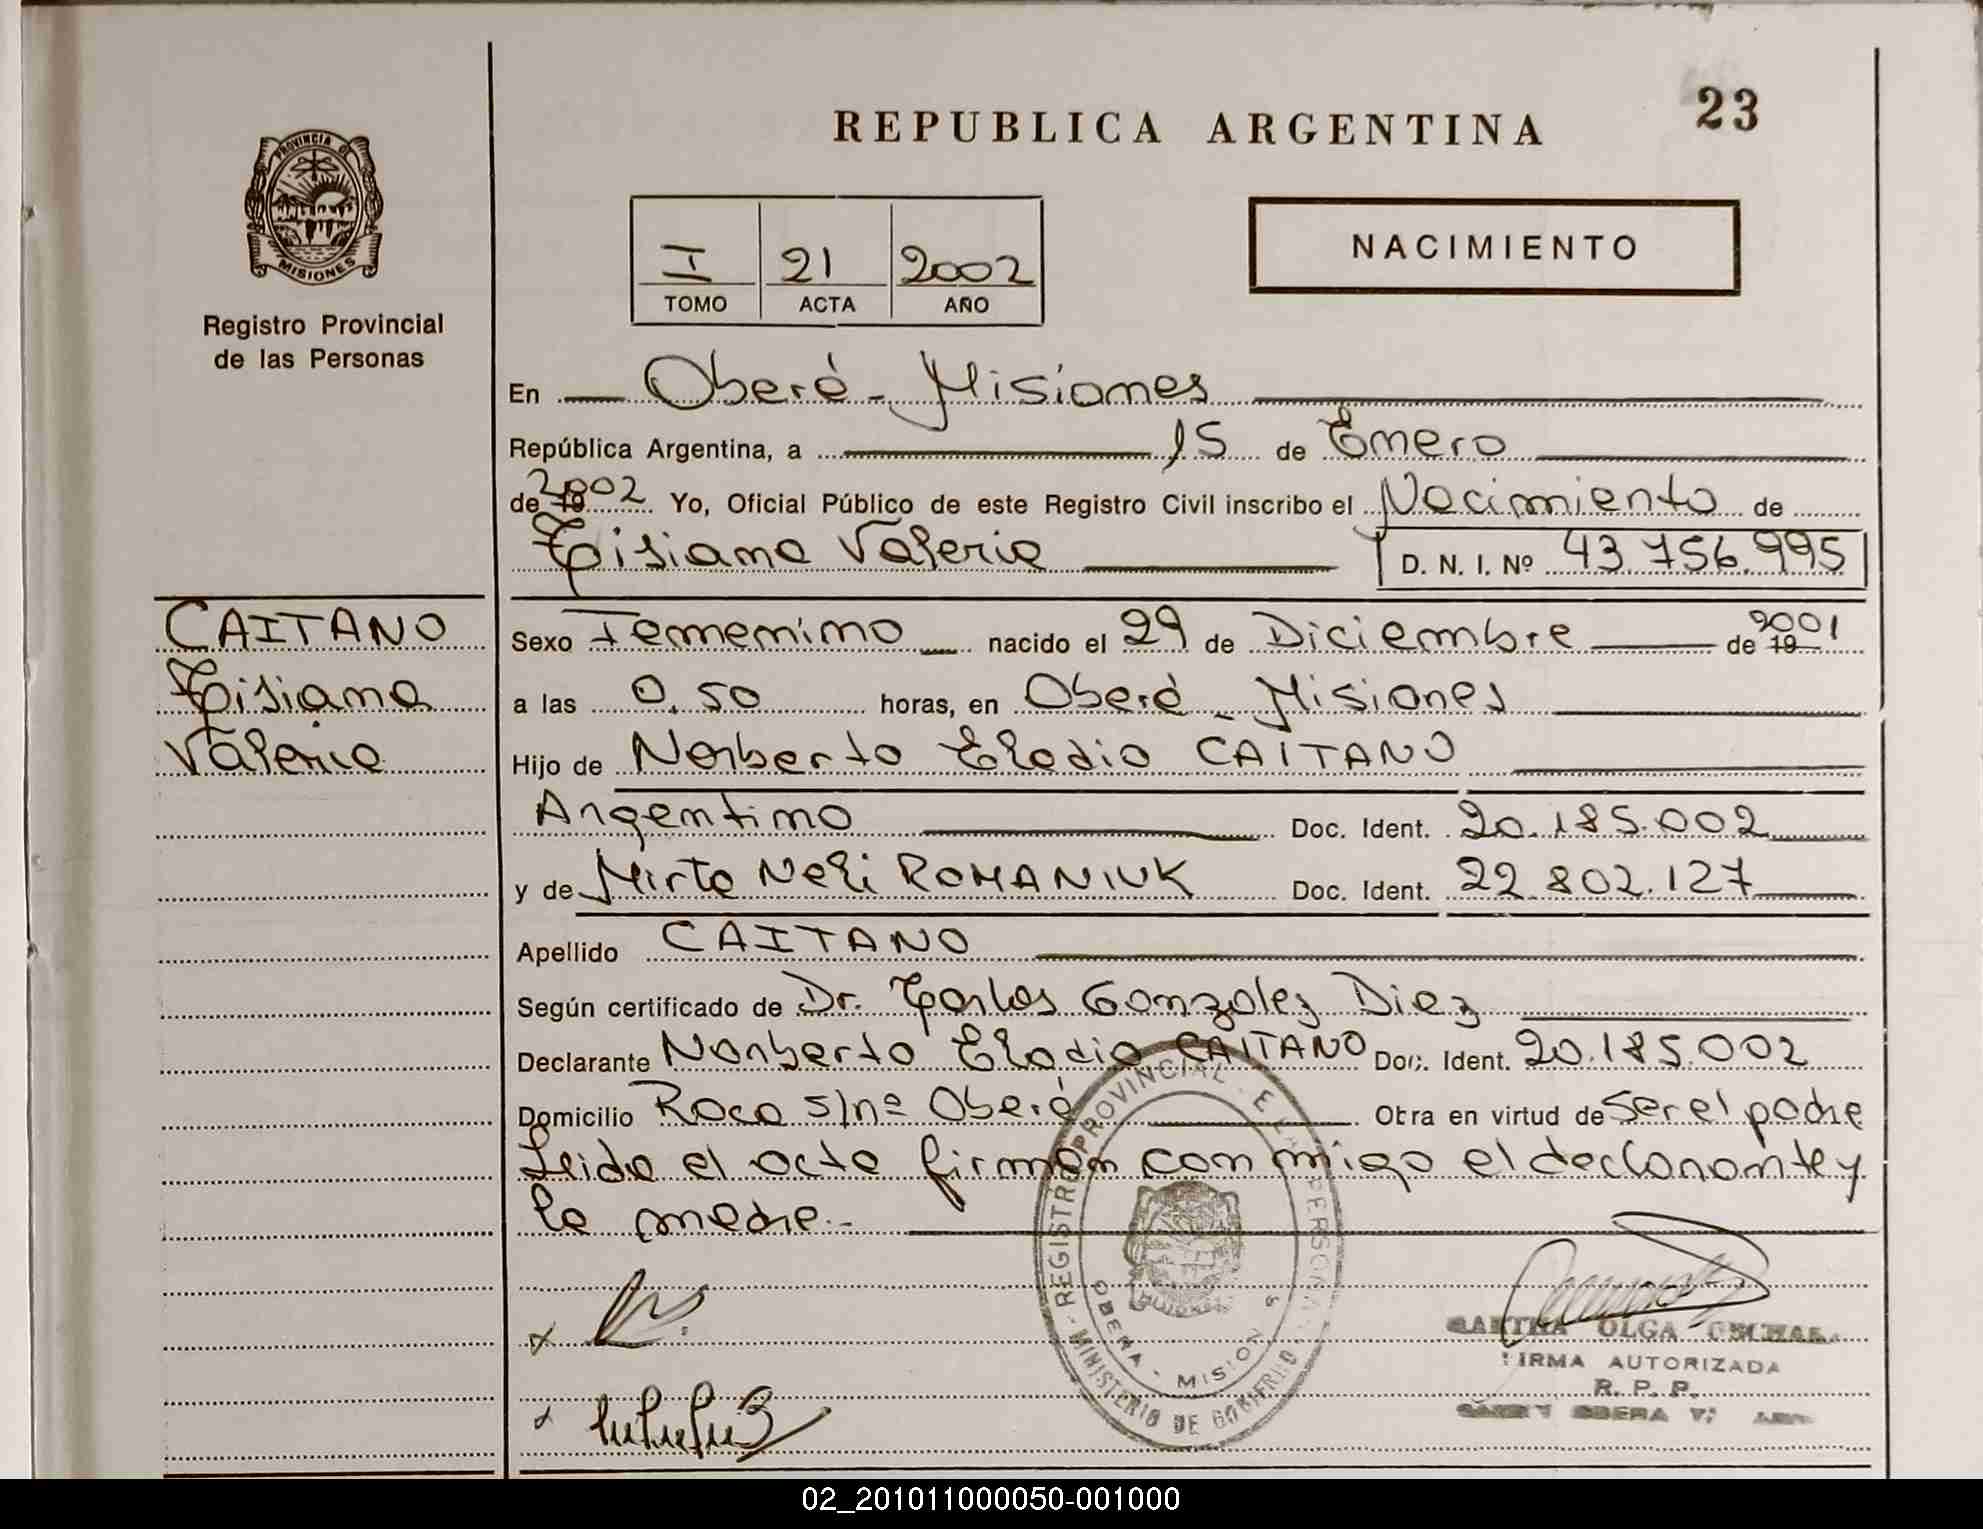 REPUBLICA ARGENTINA
23
PROVINCIA DE
MISIONES
Registro Provincial
de las Personas
I 21 2002
TOMO ACTA AÑO
NACIMIENTO
En Oberá - Misiones
República Argentina, a 15 de Enero
de 19 2002 Yo, Oficial Público de este Registro Civil inscribo el Nacimiento de
Valeria D. N. I. Nº 43.756.995
CAITANO
Valeria
Sexo Femenino nacido el 29 de Diciembre de 19 2001
a las 0,50 horas, en Oberá - Misiones
Hijo de Norberto Elodio CAITANO
Argentino Doc. Ident. 20.185.002
y de Mirta Neli ROMANIUK Doc. Ident. 22.802.127
Apellido CAITANO
Según certificado de Dr. Carlos Gonzalez Diez
Declarante Norberto Elodio CAITANO Doc. Ident. 20.185.002
Domicilio Roca s/nº Oberá Obra en virtud de ser el padre
Leida el acta firman conmigo el declarante y
la madre.-
REGISTRO PROVINCIAL E LAS PERSONA
OBERA - MISION S
MINISTERIO DE GOBIERNO
OLGA
FIRMA AUTORIZADA
R. P. P.
OBERA
02_201011000050-001000